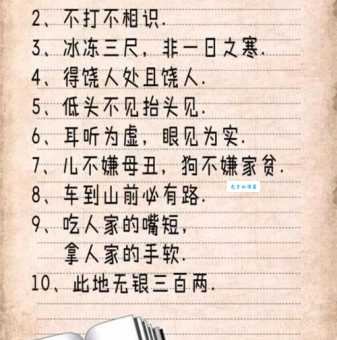 2、不打不相识.
3、冰冻三尺，非一日之寒.
4、得饶人处且饶人.
5、低头不见抬头见.
6、耳听为虚，眼见为实.
7、儿不嫌母丑，狗不嫌家贫.
8、车到山前必有路.
9、吃人家的嘴短，
拿人家的手软.
10、此地无银三百两.